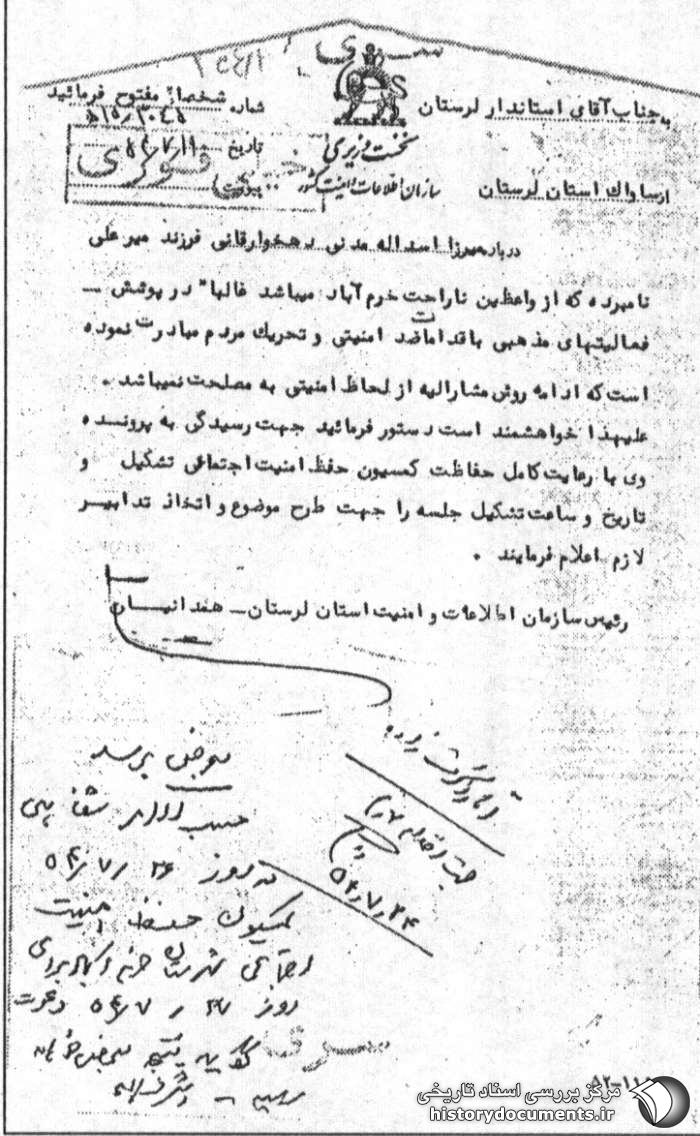 سری
شخصاً مفتوح فرمائید
به جناب آقای استاندار لرستان
شماره
نخست وزیری
تاریخ
سازمان اطلاعات و امنیت کشور
پیوست
خیلی فوری
از ساواك استان لرستان
درباره میرزا اسداله مدنی دهخوارقانی فرزند میر علی
نامبرده که از واعظین ناراحت خرم آباد میباشد غالبا" در پوشش ــ
فعالیتهای مذهبی باقداماتضد امنیتی و تحریك مردم مبادرت نموده
است که ادامه روش مشارالیه از لحاظ امنیتی به مصلحت نمیباشد .
علیهذا خواهشمند است دستور فرمائید جهت رسیدگی به پرونسده
وی با رعایت کامل حفاظت کمسیون حفظ امنیت اجتماعی تشکیل و
تاریخ و ساعت تشکیل جلسه را جهت طرح موضوع و اتخاذ تدابیر
لازم اعلام فرمایند .
رئیس سازمان اطلاعات و امنیت استان لرستان ــ هندانیان
بعرض برسد
حسب اوامر شفاهی
در روز ۲۶ /۷/ ۵۴
کمیسیون حفظ امنیت
اجتماعی شهرستان خرم آباد برای
روز ۲۷ /۷/ ۵۴ دعوت
سری
مرکز بررسی اسناد تاریخی
historydocuments.ir